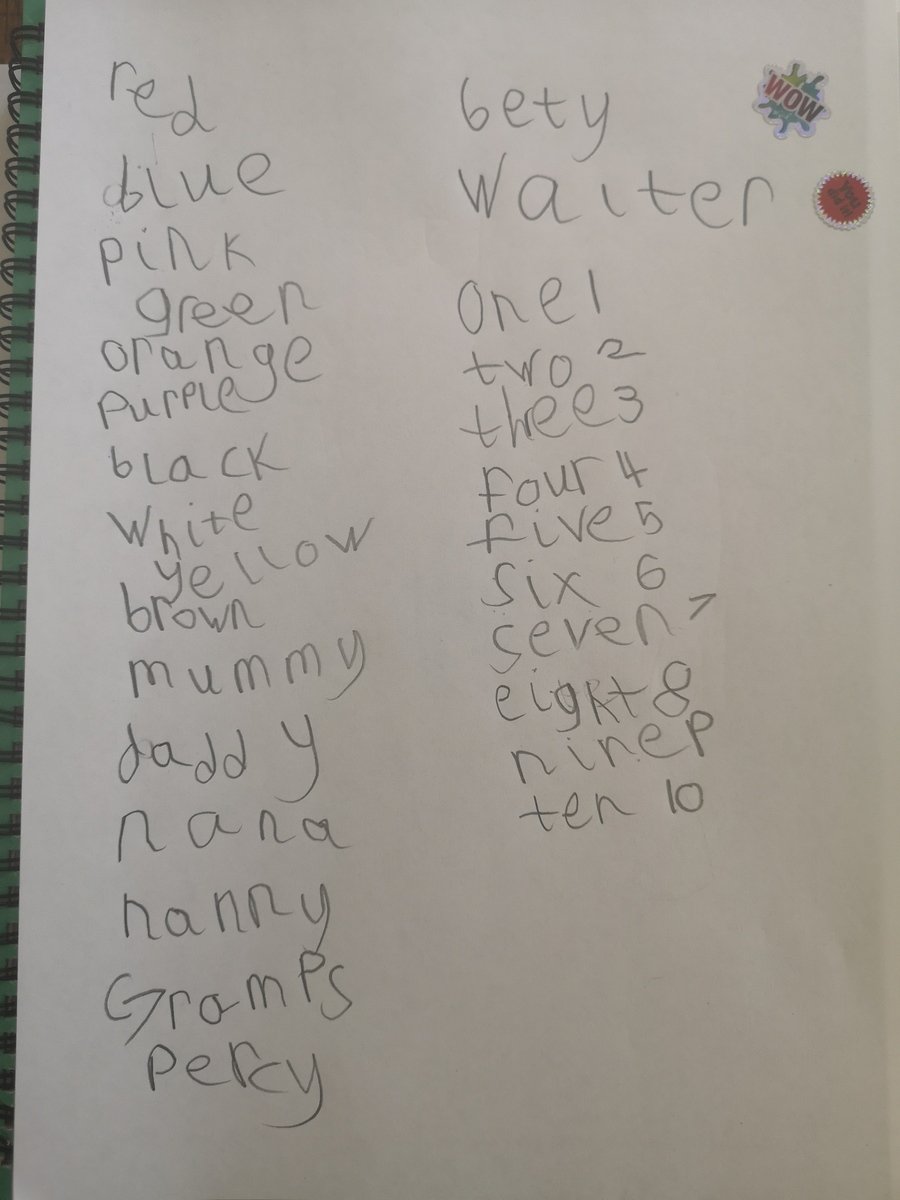 red
blue
pink
green
orange
purple
black
white
yellow
brown
mummy
daddy
nana
nanny
Gramps
percy
bety
Walter
one 1
two 2
thee 3
four 4
five 5
six 6
seven 7
eight 8
nine 9
ten 10
WOW